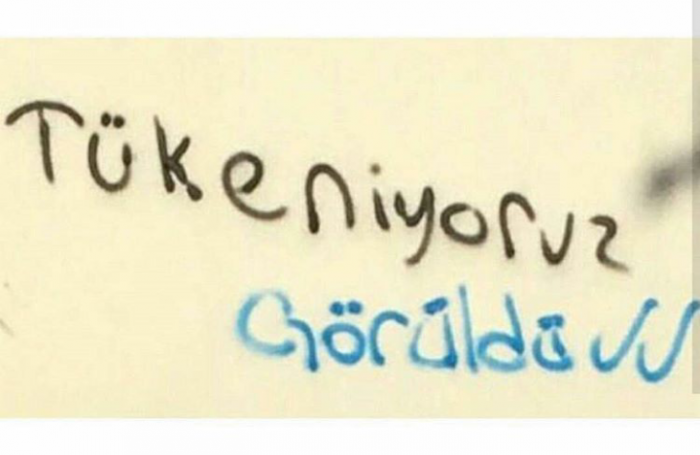 Tükeniyoruz
Görüldü ✓✓